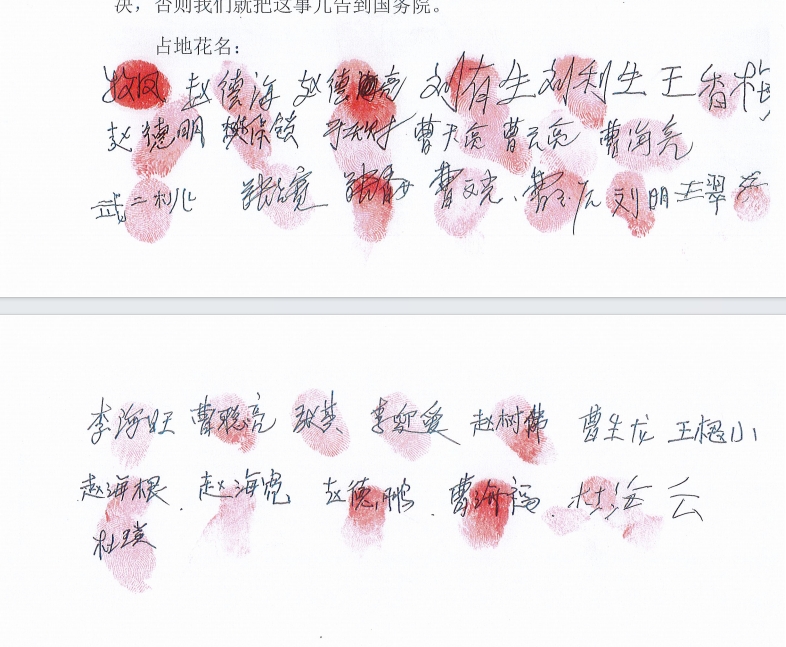 决，否则我们就把这事儿告到国务院。
占地花名：
牧凤 赵德海 赵德亮 刘有生 刘利生 王香梅
赵德明 樊保锁 曹天亮 曹云亮 曹海亮
武二桃 曹文亮、刘明 王翠
李海旺 曹聪亮 张英 李迎爱 赵树伟 曹生龙 王棍小
赵海根. 赵海宽 赵德鹏. 曹海福. 杜海云
杜璞